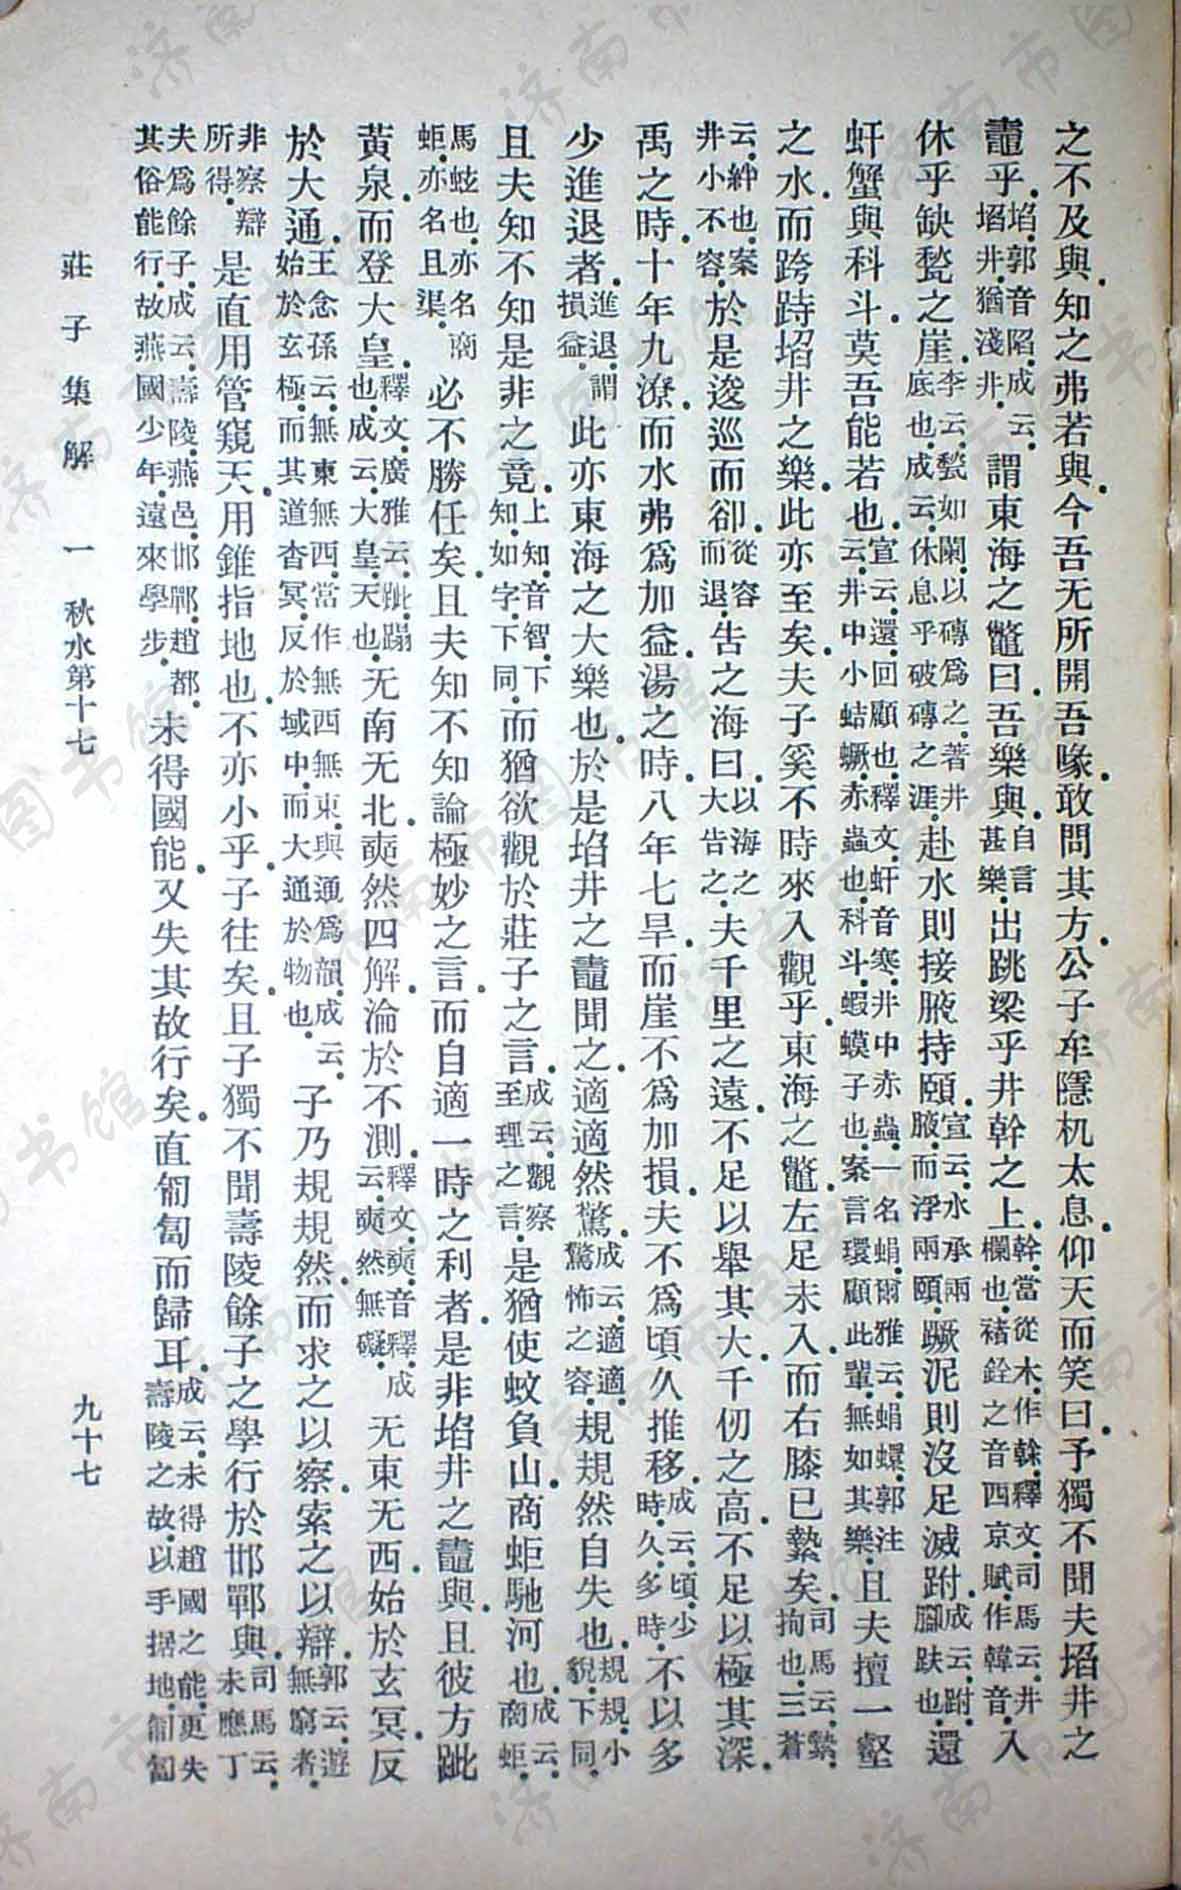 之不及與知之弗若與今吾无所開吾喙敢問其方公子牟隱机太息仰天而笑曰予獨不聞夫埳井之
鼃乎埳郭音陷成云埳井猶淺井謂東海之鼈曰吾樂與自言甚樂出跳梁乎井幹之上幹當從木作榦釋文司馬云井欄也褚銓之音西京賦作韓音入
休乎缺甃之崖李云甃如闌以磚爲之著井底也成云休息乎破磚之涯赴水則接腋持頤宣云水承兩腋而浮兩頤蹶泥則沒足滅跗成云跗腳趺也還
虷蟹與科斗莫吾能若也宣云還回顧也釋文虷音寒井中赤蟲一名蜎爾雅云蜎蠉郭注云井中小蛣蟩赤蟲也科斗蝦蟆子也案言環顧此輩無如其樂且夫擅一壑
之水而跨跱埳井之樂此亦至矣夫子奚不時來入觀乎東海之鼈左足未入而右膝已縶矣司馬云縶拘也三蒼
云絆也案井小不容於是逡巡而卻從容而退告之海曰以海之大告之夫千里之遠不足以舉其大千仞之高不足以極其深
禹之時十年九潦而水弗爲加益湯之時八年七旱而崖不爲加損夫不爲頃久推移成云頃少時久多時不以多
少進退者進退謂損益此亦東海之大樂也於是埳井之鼃聞之適適然驚成云適適驚怖之容規規然自失也規規小貌下同
且夫知不知是非之竟上知音智下知如字下同而猶欲觀於莊子之言成云觀察至理之言是猶使蚊負山商蚷馳河也成云商蚷
馬蚿也亦名商蚷亦名且渠必不勝任矣且夫知不知論極妙之言而自適一時之利者是非埳井之鼃與且彼方跐
黃泉而登大皇釋文廣雅云跐蹋也成云大皇天也无南无北奭然四解淪於不測釋文奭音釋成云奭然無礙无東无西始於玄冥反
於大通王念孫云無東無西當作無西無東與通爲韻成云始於玄極而其道杳冥反於域中而大通於物也子乃規規然而求之以察索之以辯郭云遊無窮者
非察辯所得是直用管窺天用錐指地也不亦小乎子往矣且子獨不聞壽陵餘子之學行於邯鄲與司馬云未應丁
夫爲餘子成云壽陵燕邑邯鄲趙都其俗能行故燕國少年遠來學步未得國能又失其故行矣直匍匐而歸耳成云未得趙國之能更失壽陵之故以手据地匍匐
莊子集解 一 秋水第十七 九十七